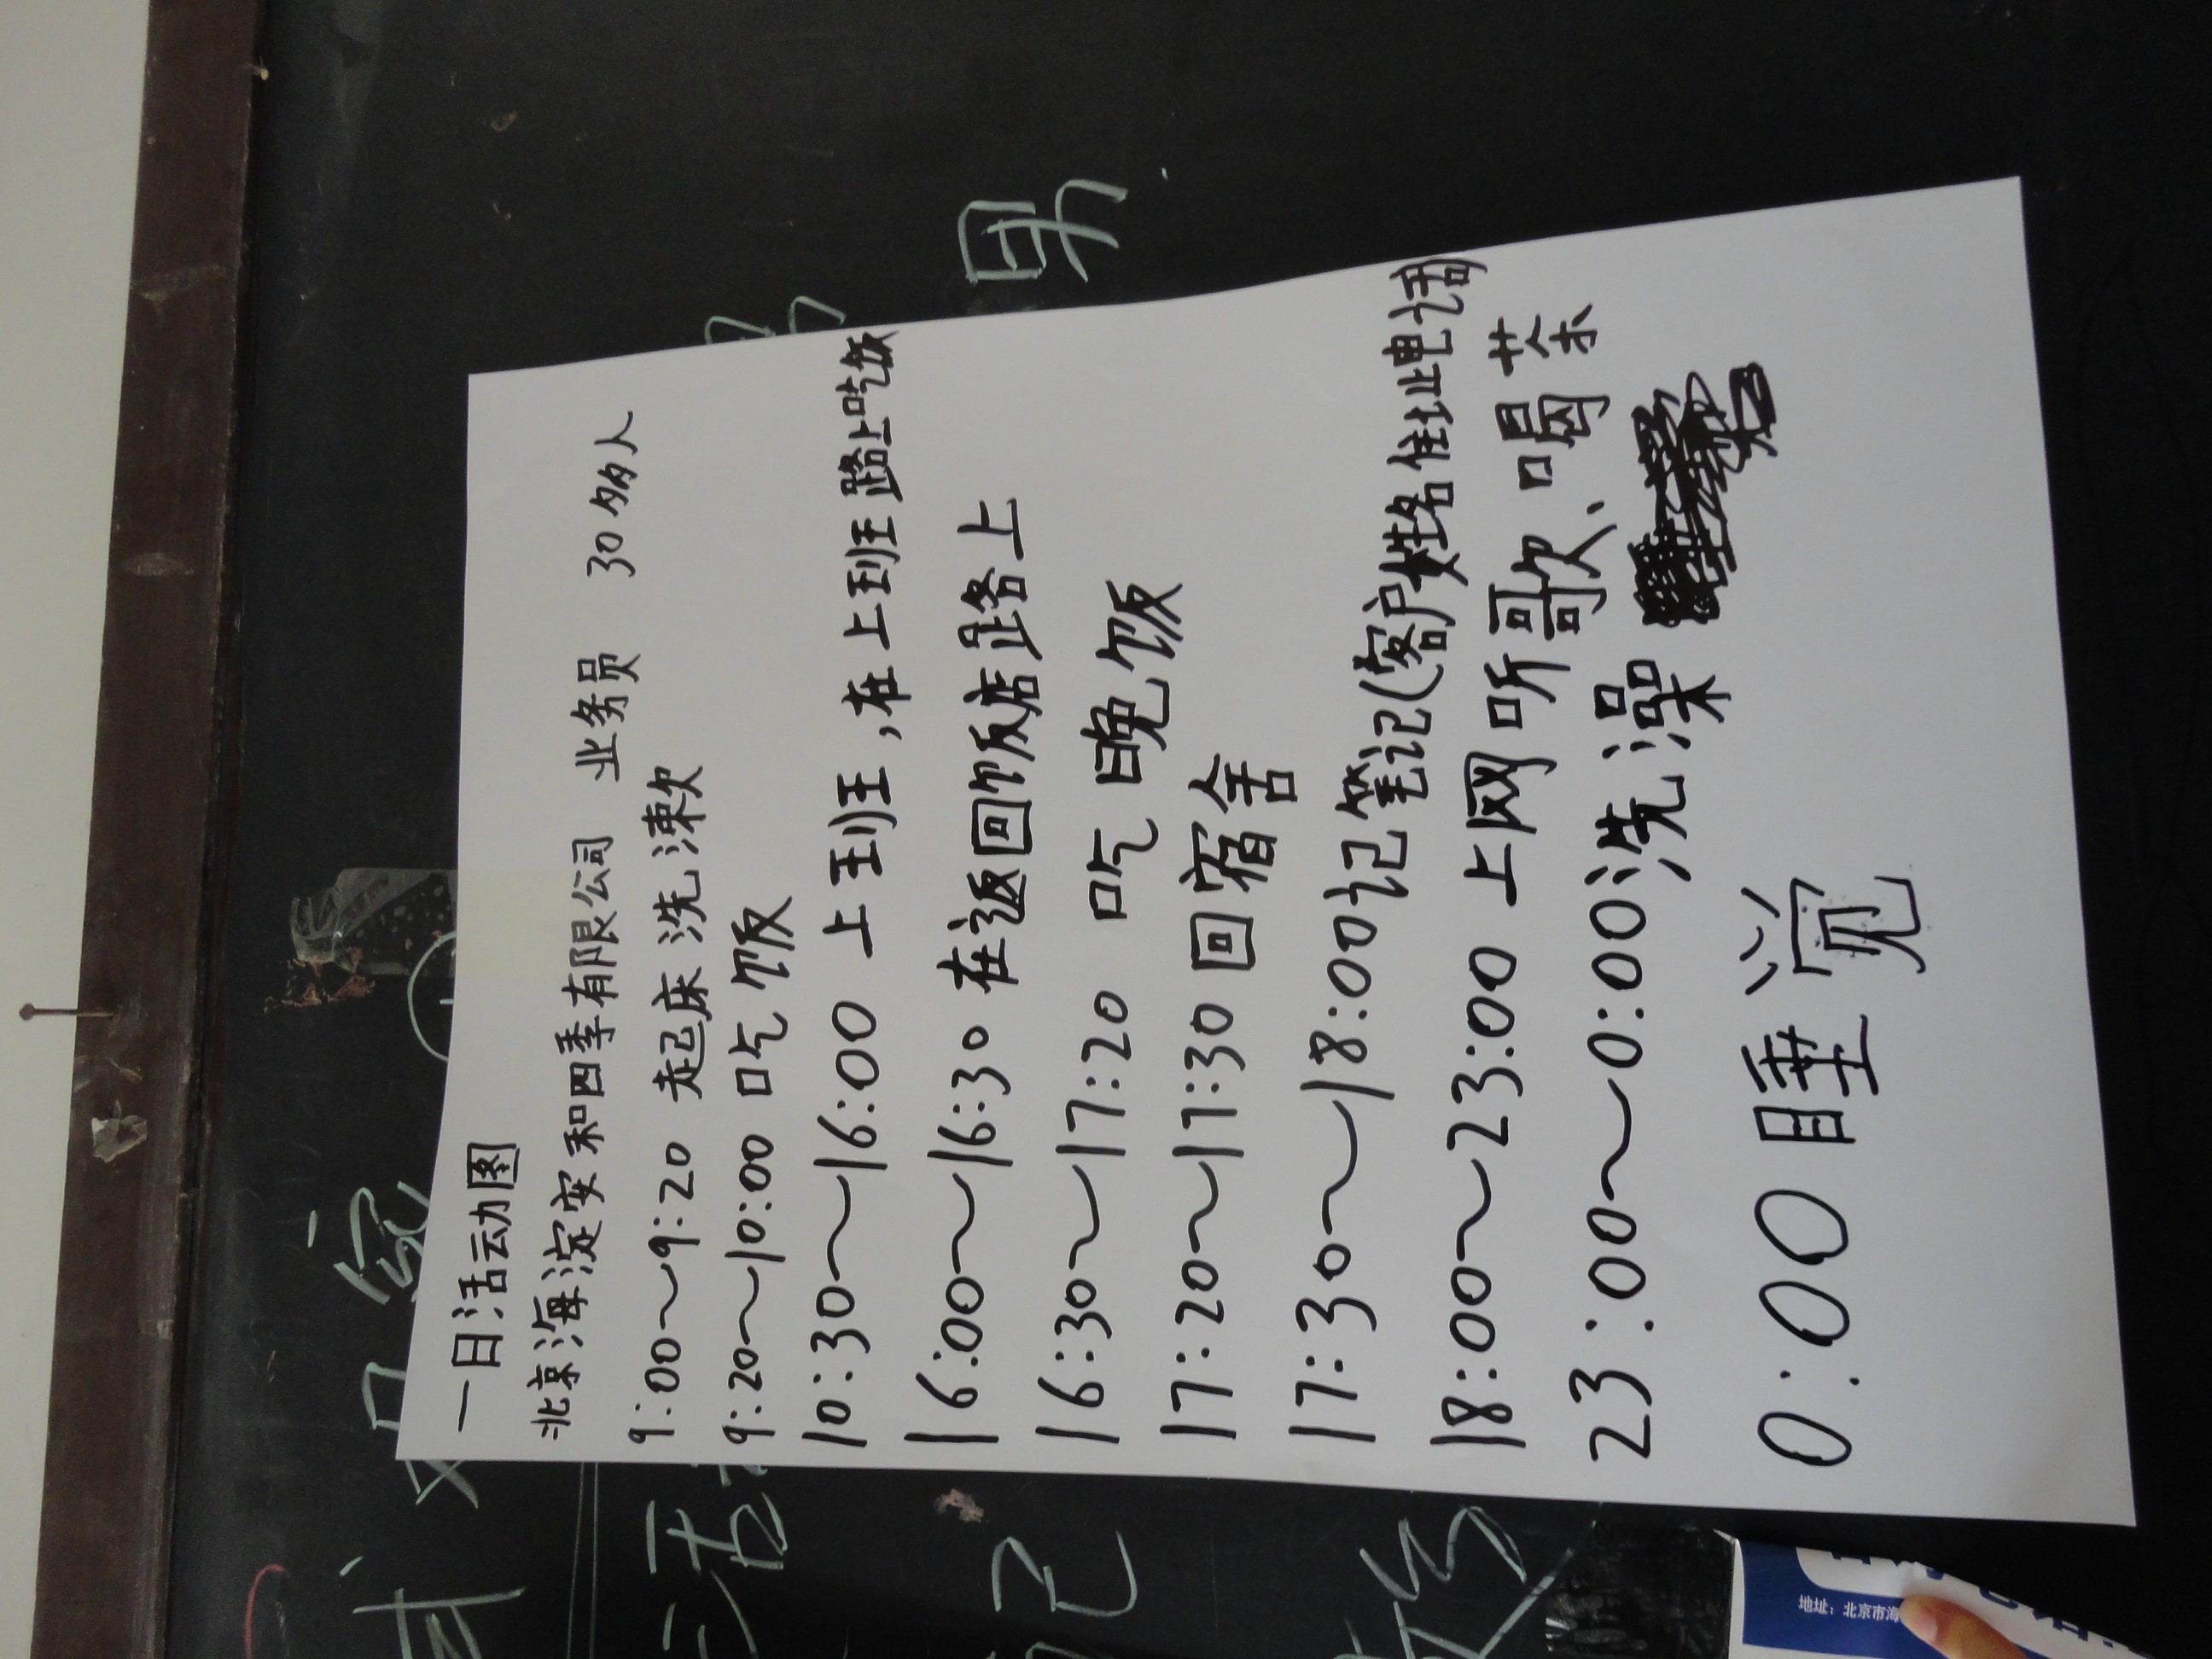 一日活动图
北京海淀安和四季有限公司 业务员 30多人
9:00～9:20 起床洗漱
9:20～10:00 吃饭
10:30～16:00 上班,在上班路上吃饭
16:00～16:30 在返回饭店路上
16:30～17:20 吃晚饭
17:20～17:30 回宿舍
17:30～18:00 记笔记(客户姓名住址电话)
18:00～23:00 上网听歌、喝茶
23:00～0:00 洗澡
0:00 睡觉
地址: 北京市海